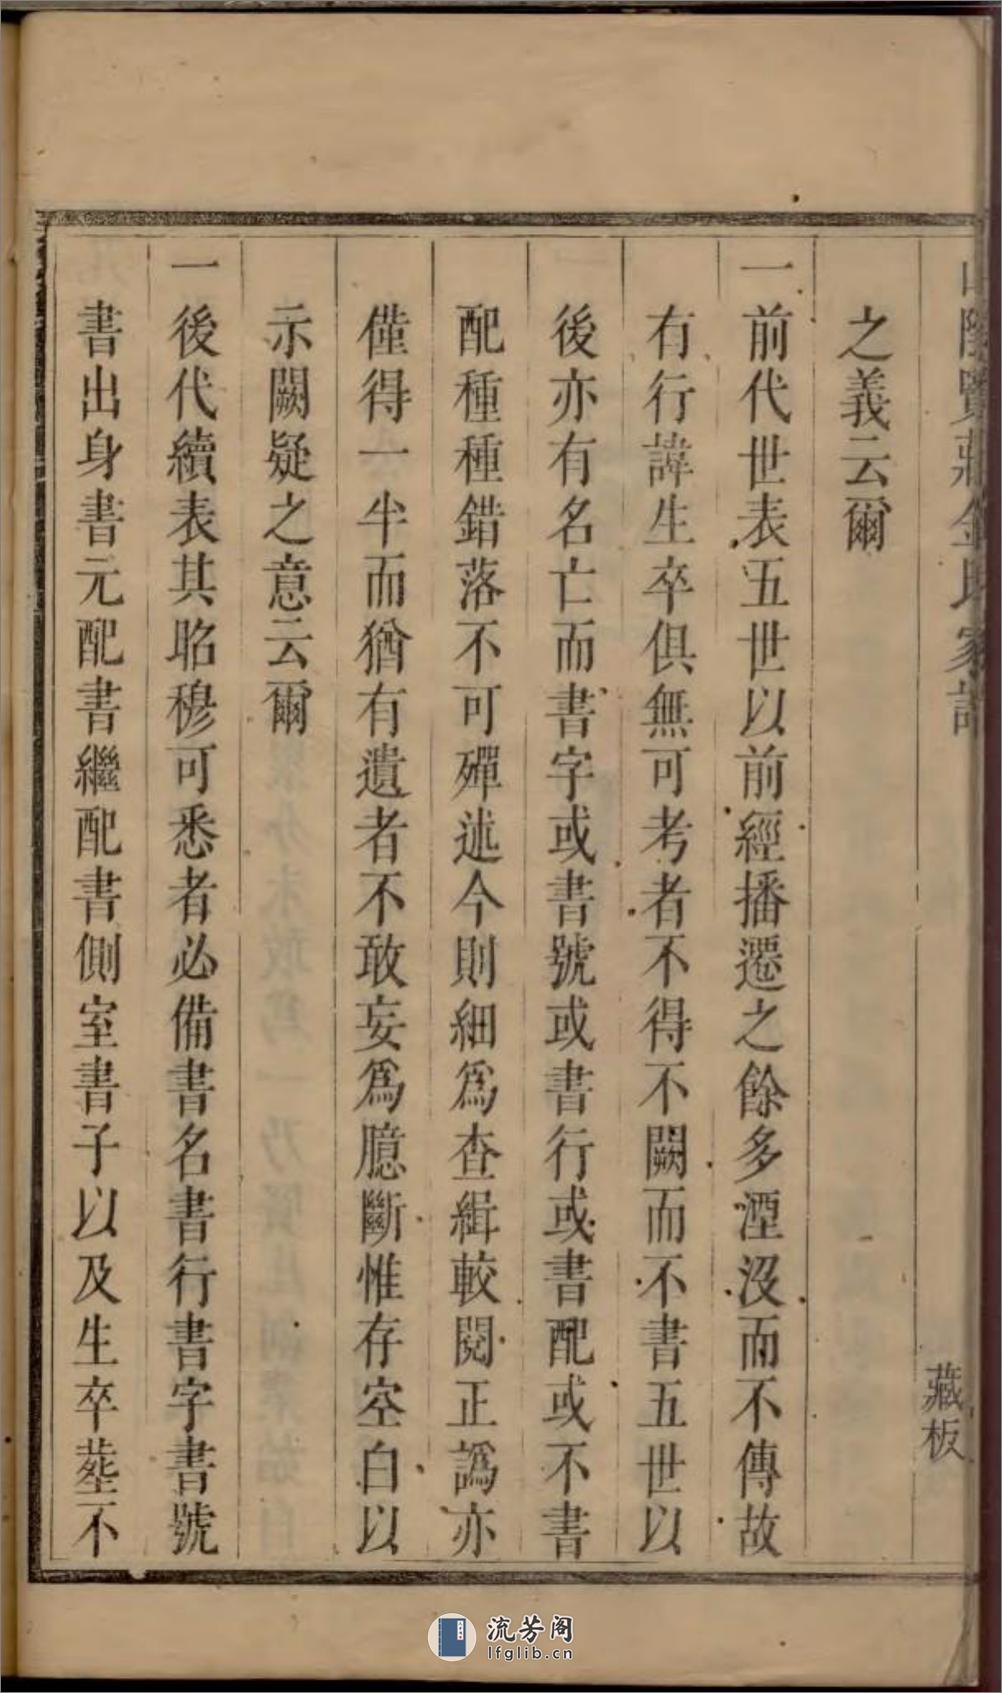 山陰賢莊金氏家譜
藏板
之義云爾
一前代世表五世以前經播遷之餘多湮沒而不傳故
有行諱生卒俱無可考者不得不闕而不書五世以
後亦有名亡而書字或書號或書行或書配或不書
配種種錯落不可殫述今則細爲查緝較閱正譌亦
僅得一半而猶有遺者不敢妄爲臆斷惟存空白以
示闕疑之意云爾
一後代續表其昭穆可悉者必備書名書行書字書號
書出身書元配書繼配書側室書子以及生卒塟不
流芳阁
lfglib.cn